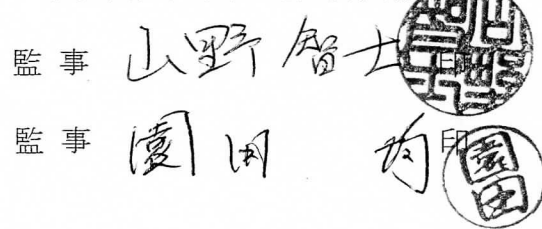 監事 山野智士 印
監事 園田 均 印
園田